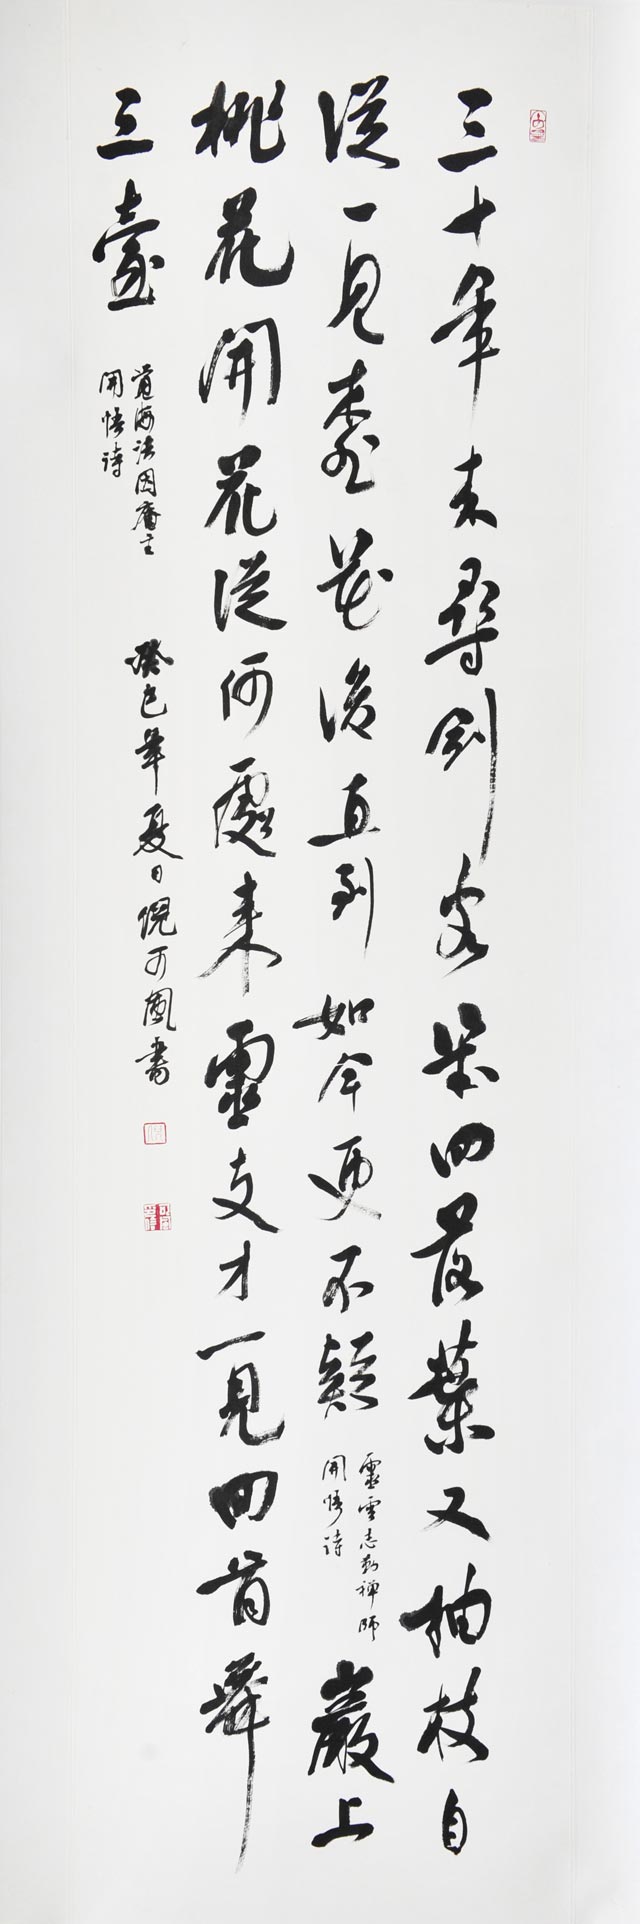 三十年来尋劍客幾回落葉又抽枝自
從一見桃花後直到如今更不疑
靈雲志勤禪師
開悟詩
巖上
桃花開花從何處來靈云才一見回首舞
三臺
覺海法因庵主
開悟詩
癸巳年夏日倪可書